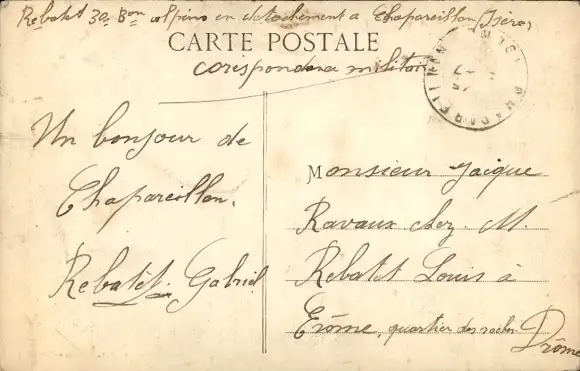 Rebatet 30e Bon alpins en detachement a Chapareillan, Isère,
CARTE POSTALE
corespondance militaire
Un bonjour de
Chapareillan.
Rebatet Gabriel
Monsieur Jacque
Ravaux chez M.
Rebatet Louis à
Erôme, quartier des roches
Drôme